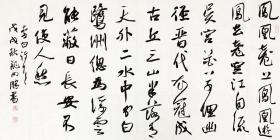 鳳凰臺上鳳凰遊
鳳去臺空江自流
吳宮花草埋幽
徑晉代衣冠成
古丘三山半落青
天外二水中分白
鷺洲總為浮雲
能蔽日長安不
見使人愁
李白詩
戊戌秋 書